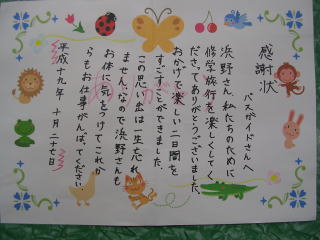 感謝状
バスガイドさんへ
浜野さん、私たちのために
修学旅行を楽しくしてく
ださってありがとうございました。
おかげで楽しい二日間を
すごすことができました。
この思い出は一生忘れ
ませんなので浜野さんも
お体に気をつけてこれか
らもお仕事がんばってください。
平成十九年 十月二十七日